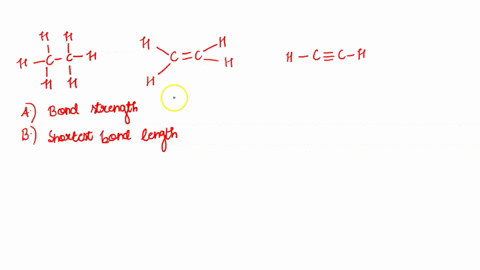 H H H H H H
H-C-C-H C=C H-C≡C-H
H H H H
A.) Bond strength
B.) Shortest bond length